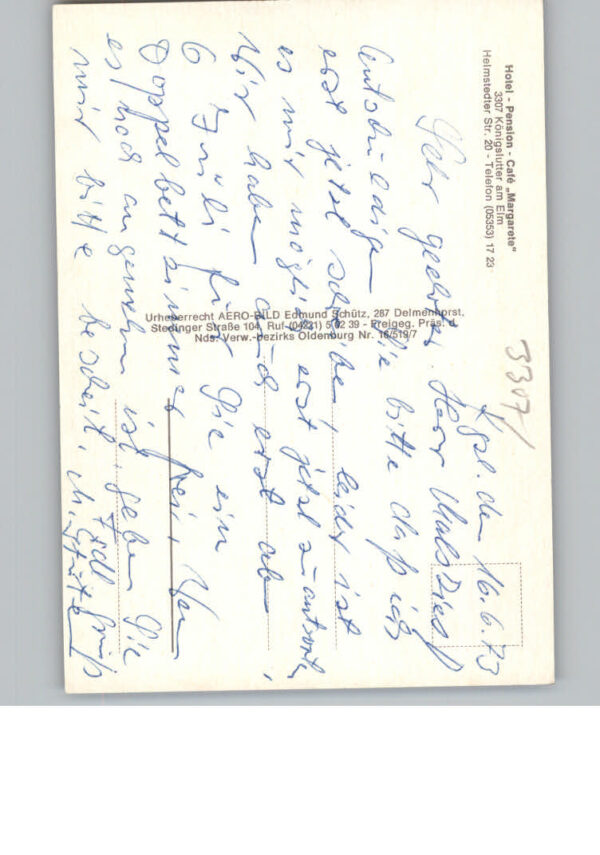 Hotel - Pension - Café „Margarete“
3307 Königslutter am Elm
Helmstedter Str. 20 - Telefon (05353) 17 23
3307/
Kgsl. den 16.6.73
Sehr geehrter Herr
Entschuldigen Sie bitte daß ich
erst jetzt schreibe, leider ist
es mir möglich erst jetzt zu antworten,
Wir haben auch erst ab
6 Juli für Sie ein
Doppelbettzimmer frei, Wenn
es noch angenehm ist, geben Sie
mir bitte bescheit, Frdl Grüß
Urheberrecht AERO-BILD Edmund Schütz, 287 Delmenhorst,
Stedinger Straße 104, Ruf (04221) 5 02 39 - Freigeg. Präs. d.
Nds. Verw.-Bezirks Oldenburg Nr. 16/519/7